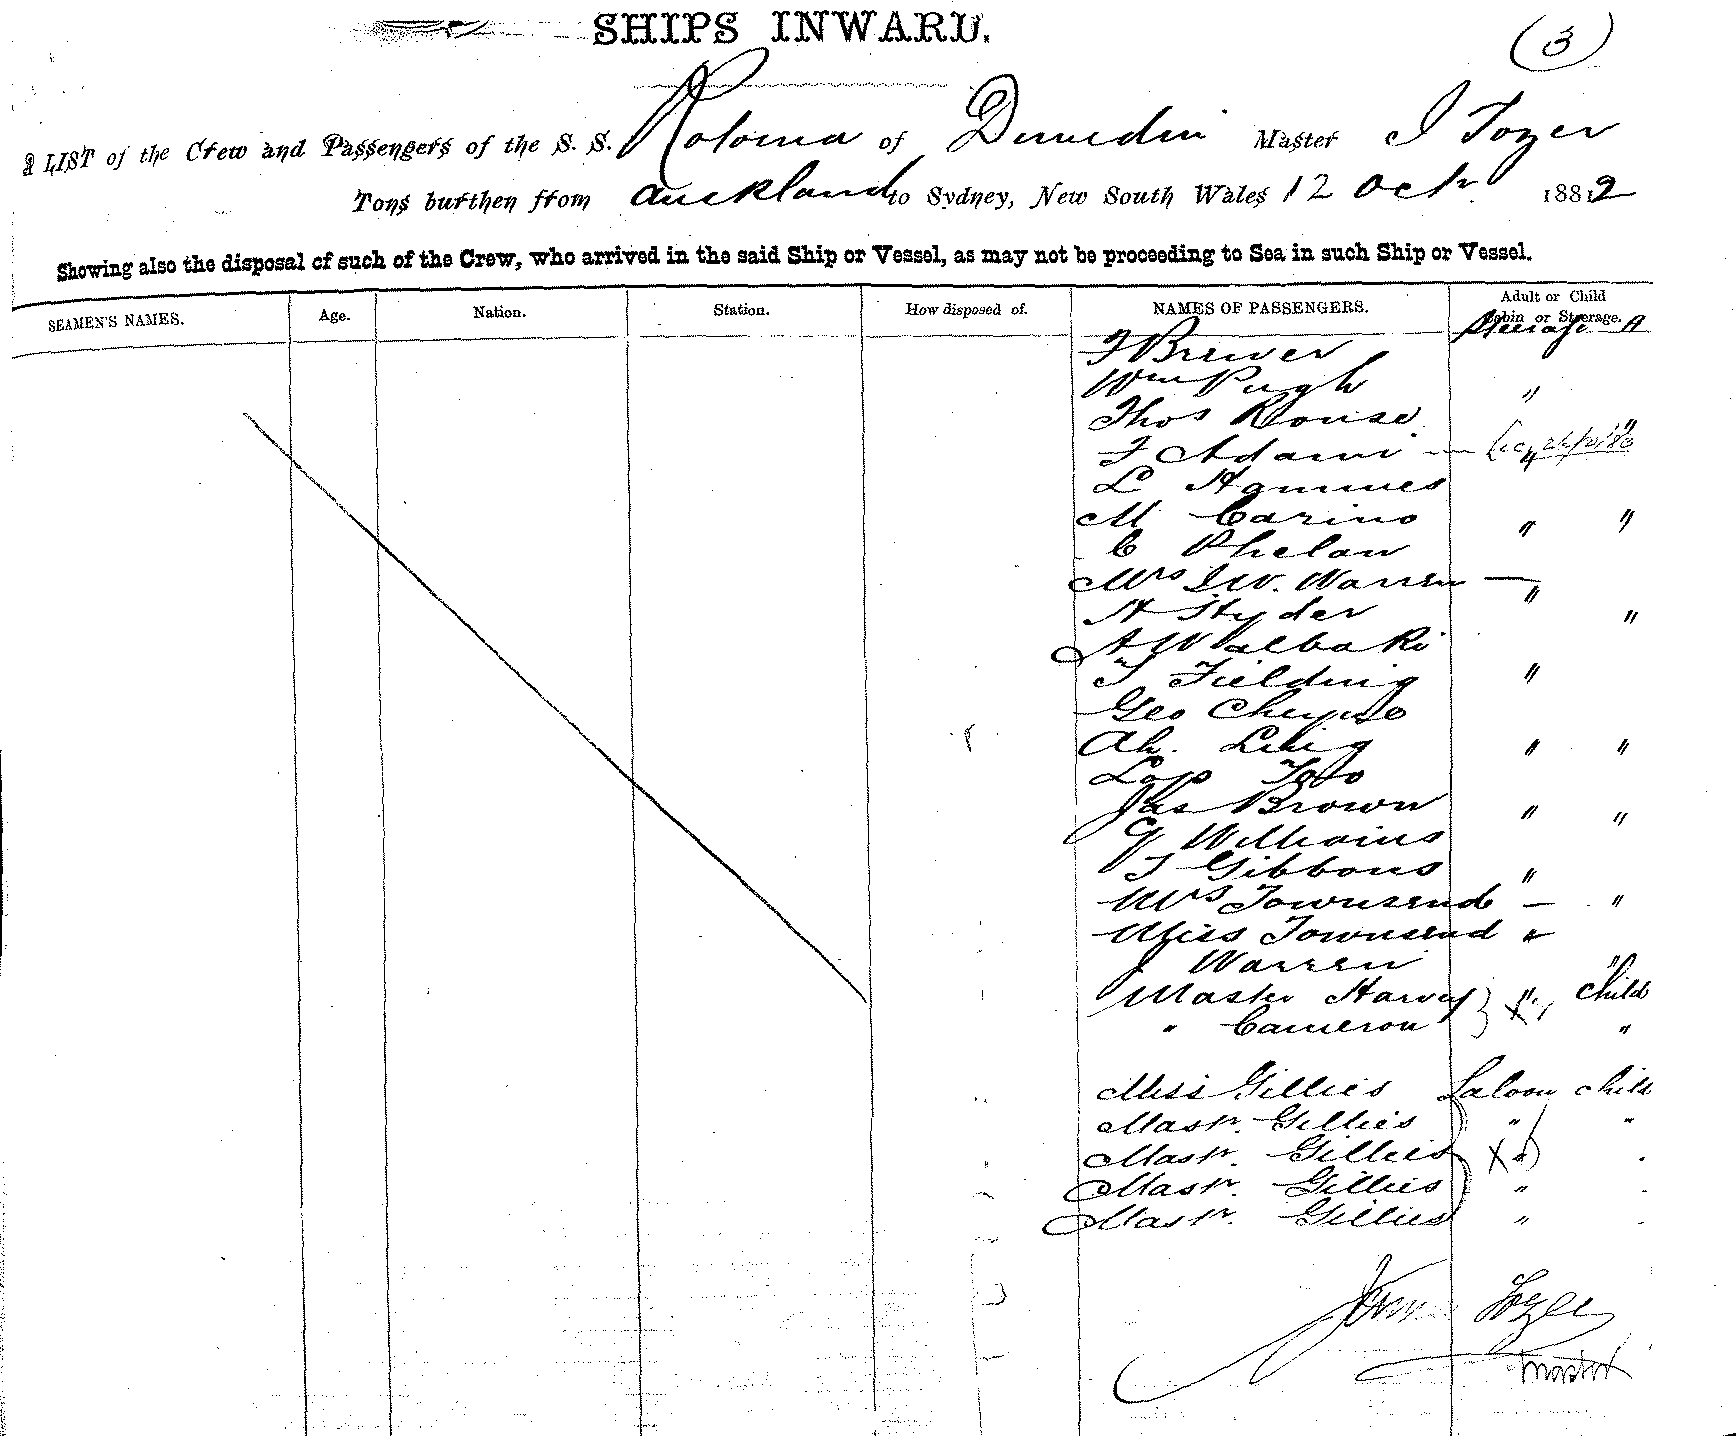 SHIPS INWARD.
(3)
A LIST of the Crew and Passengers of the S. S. Rotorua of Dunedin Master J Tozer
Tons burthen from Auckland to Sydney, New South Wales 12 Octr 1882
Showing also the disposal of such of the Crew, who arrived in the said Ship or Vessel, as may not be proceeding to Sea in such Ship or Vessel.
SEAMEN'S NAMES. Age. Nation. Station. How disposed of. NAMES OF PASSENGERS. Adult or Child Cabin or Steerage.
Steerage A
Brewer
Wm Pugh "
Thos Rouse "
F Adams —
L
M Carino " "
C Phelan
Mrs J W. Warren — "
H Styder "
A
T Fielding "
Geo Cheyne
Ah. " "
Jas Brown " "
G Williams
T Gibbons "
Mrs Townsend — "
Miss Townsend "
J Warren "
Master Harvey } " child
" Cameron "
Miss Gillies Saloon child
Mastr. Gillies " "
Mastr. Gillies X "
Mastr. Gillies "
Mastr. Gillies "
John Tozer
Master